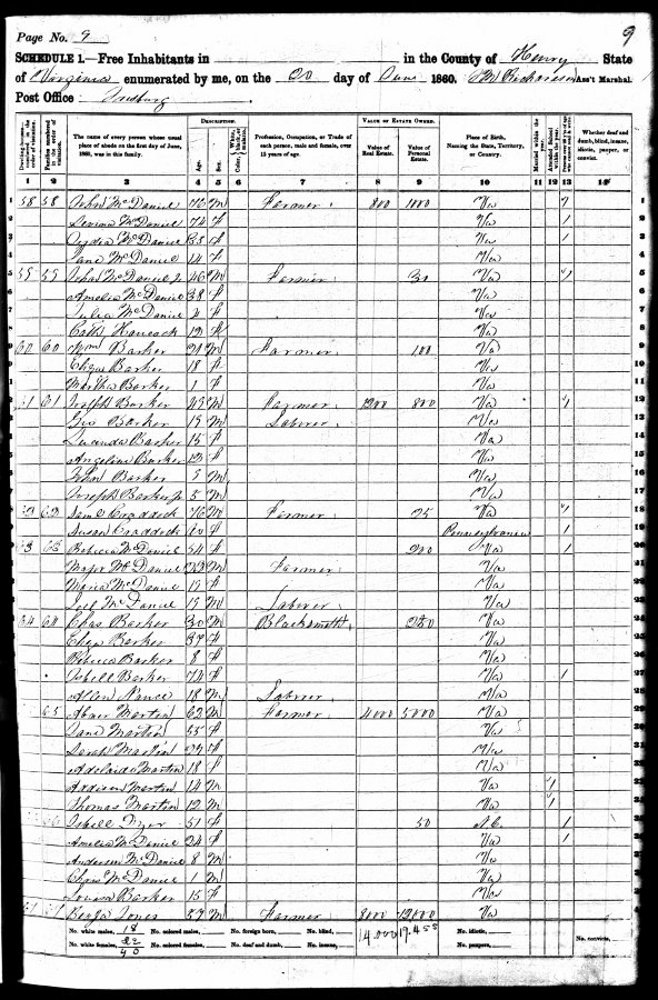 Page No. 9
9
SCHEDULE 1.—Free Inhabitants in in the County of Henry State
of Virginia enumerated by me, on the 20 day of June 1860. Richardson Ass't Marshal.
Post Office
DESCRIPTION. VALUE OF ESTATE OWNED.
Dwelling-houses—numbered in the order of visitation. Families numbered in the order of visitation. The name of every person whose usual place of abode on the first day of June, 1860, was in this family. Age. Sex. Color, Profession, Occupation, or Trade of each person, male and female, over 15 years of age. Value of Real Estate. Value of Personal Estate. Place of Birth, Naming the State, Territory, or Country. Married within the year. Attended School within the year. Whether deaf and dumb, blind, insane, idiotic, pauper, or convict.
1 2 3 4 5 6 7 8 9 10 11 12 13 14
1 58 58 John McDaniel 76 M Farmer 800 1000 Va 1
2 McDaniel 74 F Va 1
3 Lydia McDaniel 35 F Va 1
4 Jane McDaniel 14 F Va
5 59 59 John McDaniel Jr 46 M Farmer 30 Va 1
6 Amelia McDaniel 38 F Va
7 Julia McDaniel F Va
8 Hancock 12 F Va
9 60 60 Wm Barker 21 M Farmer 100 Va
10 Eliza Barker 18 F Va
11 Martha Barker 1 F Va
12 61 61 Joseph Barker 49 M Farmer 1200 800 Va 1
13 Geo Barker 19 M Laborer Va
14 Barker 15 F Va
15 Angeline Barker 12 F Va
16 John Barker 9 M Va
17 Joseph Barker Jr 5 M Va
18 62 62 Saml Craddock 76 M Farmer 25 Va 1
19 Susan Craddock F Pennsylvania 1
20 63 63 Rebecca McDaniel 54 F 200 Va 1
21 Major McDaniel 22 M Farmer Va
22 Maria McDaniel 17 F Va
23 Joel McDaniel 15 M Laborer Va
24 64 64 Chas Barker 30 M Blacksmith 250 Va
25 Eliza Barker 37 F Va
26 Rebecca Barker 8 F Va
27 Isbell Barker 74 F Va 1
28 Allen Nance 18 M Laborer Va
29 65 Abner Martin 62 M Farmer 4000 5000 Va
30 Jane Martin 55 F Va
31 Sarah Martin 22 F Va
32 Adelaide Martin 18 F Va
33 Addison Martin 14 M Va 1
34 Thomas Martin 12 M Va 1
35 66 Isbell Dyer 51 F 50 N.C. 1
36 Amelia McDaniel 24 F Va 1
37 Anderson McDaniel 8 M Va
38 Chas McDaniel 1 M Va
39 Louisa Barker 15 F Va
40 Jones M Farmer 8000 12000 Va
No. white males, 18 No. colored males, No. foreign born, No. blind, 14,000 19,455 No. idiotic, No. convicts,
No. white females, 22 No. colored females, No. deaf and dumb, No. insane, No. paupers,
40